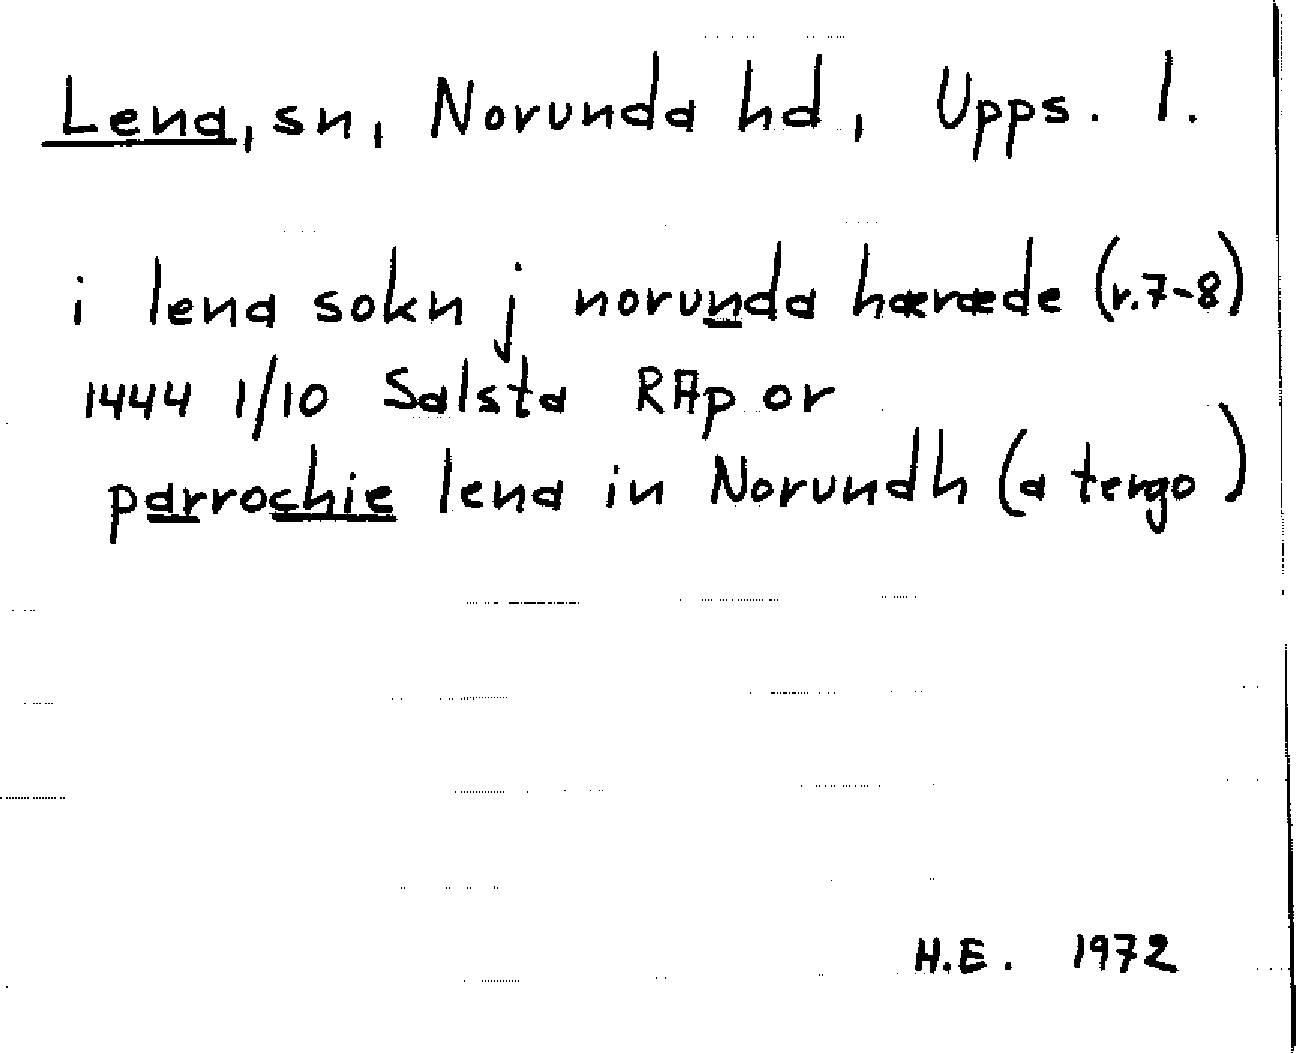 Lena, sn, Norunda hd, Upps. l.
i lena sokn j norunda hæræde (r.7-8)
1444 1/10 Salsta RAp or
parrochie lena in Norundh (a tergo)
H.E. 1972